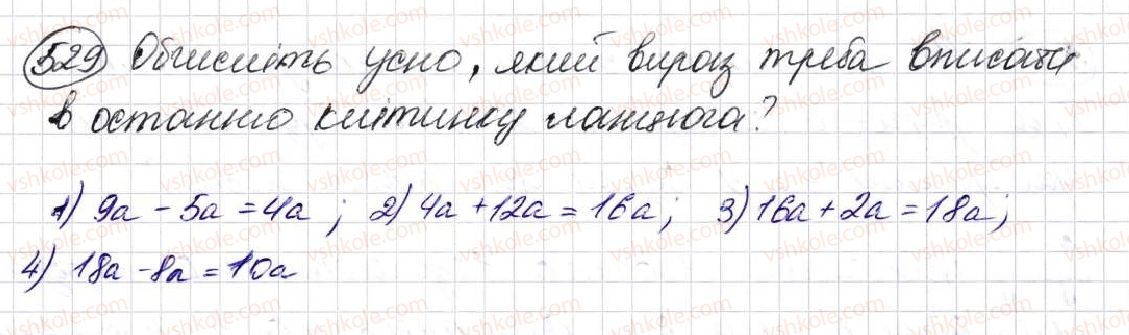 529 Обчисліть усно, який вираз треба вписати
в останню клітинку ланцюга?
1) 9a - 5a = 4a ; 2) 4a + 12a = 16a ; 3) 16a + 2a = 18a ;
4) 18a - 8a = 10a